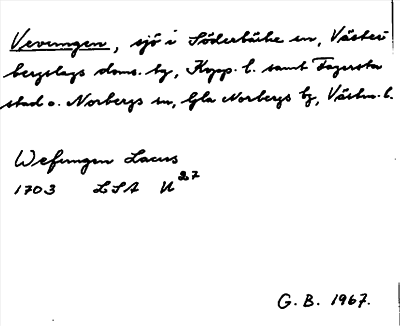 Vevungen, sjö i Söderbärke sn, Väster-
bergslags doms. tg, Kopp. l. samt Fagersta
stad o. Norbergs sn, Gla Norbergs bg, Västm. l.
Wefungen Lacus
1703 LSA U27
G. B. 1967.